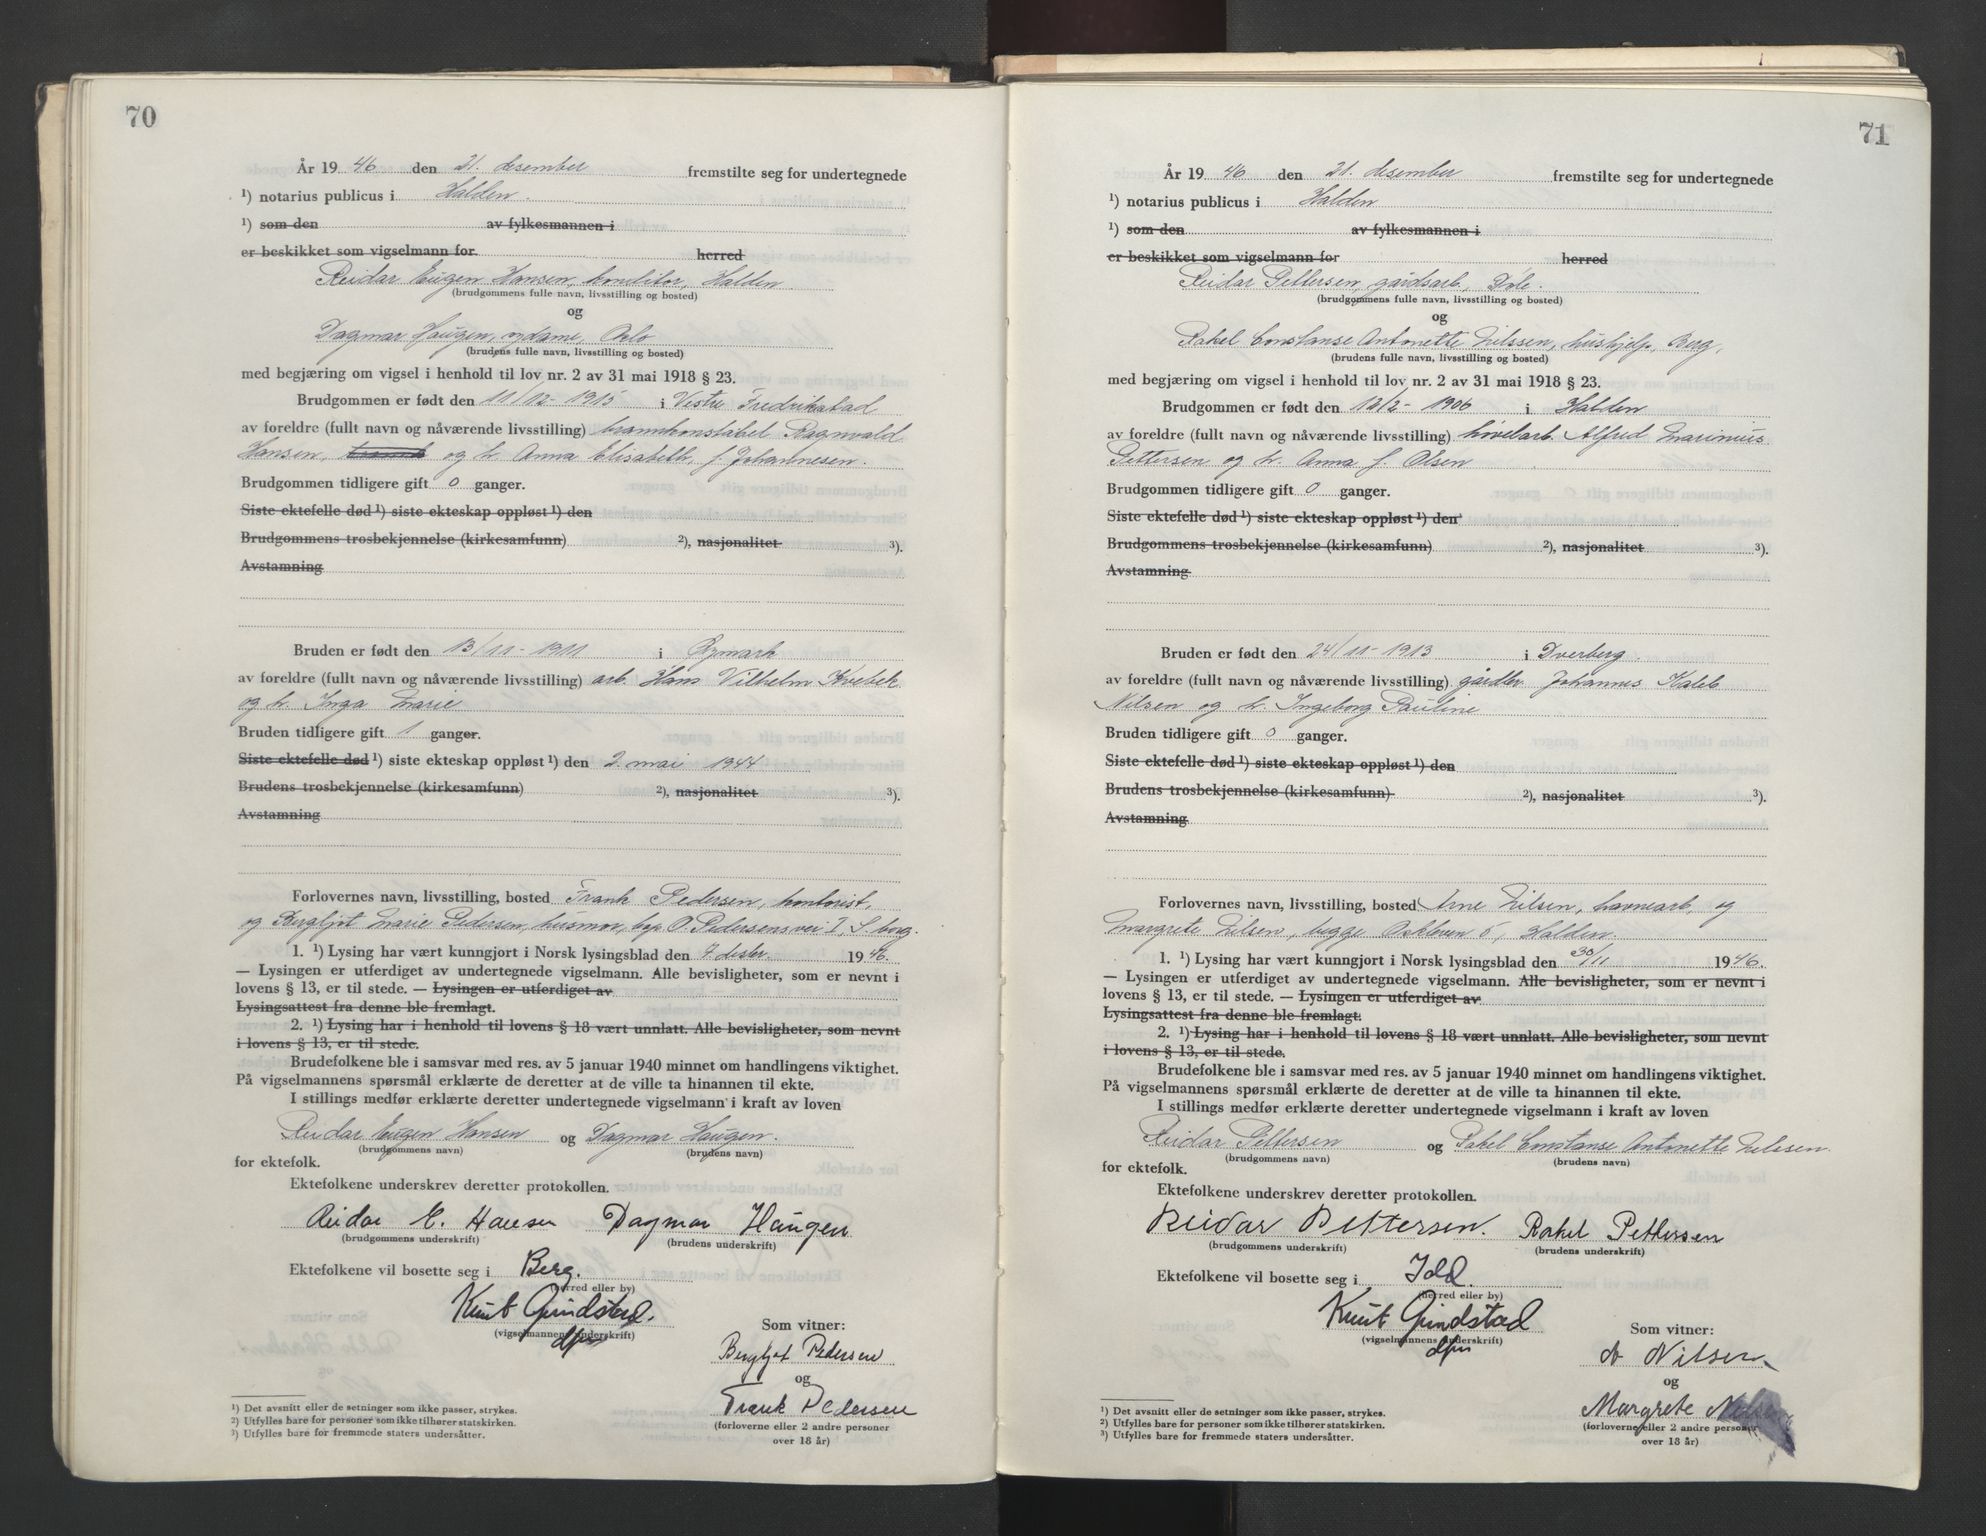 70
År 19 46 den 21. desember fremstilte seg for undertegnede
¹) notarius publicus i Halden.
¹) som den av fylkesmannen i
er beskikket som vigselmann for herred
Reidar Eugen Hansen, konditor, Halden.
(brudgommens fulle navn, livsstilling og bosted)
og
Dagmar Haugen, sydame, Oslo
(brudens fulle navn, livsstilling og bosted)
med begjæring om vigsel i henhold til lov nr. 2 av 31 mai 1918 § 23.
Brudgommen er født den 11/12- 1915 i Vestre Fredrikstad
av foreldre (fullt navn og nåværende livsstilling) brannkonstabel Ragnvald
Hansen, og h. Anna Elisabeth, f. Johannesen.
Brudgommen tidligere gift 0 ganger.
Siste ektefelle død ¹) siste ekteskap oppløst ¹) den
Brudgommens trosbekjennelse (kirkesamfunn) ²), nasjonalitet ³).
Avstamning
Bruden er født den 13/11- 1911 i Øymark
av foreldre (fullt navn og nåværende livsstilling) arb. Hans Vilhelm Kvebek
og h. Inga Marie
Bruden tidligere gift 1 ganger.
Siste ektefelle død ¹) siste ekteskap oppløst ¹) den 2. mai 1944
Brudens trosbekjennelse (kirkesamfunn) ²), nasjonalitet ³).
Avstamning
Forlovernes navn, livsstilling, bosted Frank Pedersen, kontorist,
og Bergljot Marie Pedersen, husmor, beg. O. Pedersens vei I, S.borg.
1. ¹) Lysing har vært kunngjort i Norsk lysingsblad den 7. desbr. 1946.
— Lysingen er utferdiget av undertegnede vigselmann. Alle bevisligheter, som er nevnt i
lovens § 13, er til stede. — Lysingen er utferdiget av
Lysingsattest fra denne ble fremlagt.
2. ¹) Lysing har i henhold til lovens § 18 vært unnlatt. Alle bevisligheter, som nevnt
i lovens § 13, er til stede.
Brudefolkene ble i samsvar med res. av 5 januar 1940 minnet om handlingens viktighet.
På vigselmannens spørsmål erklærte de deretter at de ville ta hinannen til ekte.
I stillings medfør erklærte deretter undertegnede vigselmann i kraft av loven
Reidar Eugen Hansen og Dagmar Haugen.
(brudgommens navn) (brudens navn)
for ektefolk.
Ektefolkene underskrev deretter protokollen.
Reidar E. Hansen Dagmar Haugen
(brudgommens underskrift) (brudens underskrift)
Ektefolkene vil bosette seg i Berg.
(herred eller by)
Knut Grindstad.
(vigselmannens underskrift)
dfm
Som vitner:
Bergljot Pedersen
og
Frank Pedersen
(forloverne eller 2 andre personer
over 18 år)
¹) Det avsnitt eller de setninger som ikke passer, strykes.
²) Utfylles bare for personer som ikke tilhører statskirken.
³) Utfylles bare for fremmede staters undersåtter.
71
År 19 46 den 21. desember fremstilte seg for undertegnede
¹) notarius publicus i Halden
¹) som den av fylkesmannen i
er beskikket som vigselmann for herred
Reidar Pettersen, gårdsarb., Idd.
(brudgommens fulle navn, livsstilling og bosted)
og
Rakel Constanse Antonette Nilssen, hushjelp, Berg,
(brudens fulle navn, livsstilling og bosted)
med begjæring om vigsel i henhold til lov nr. 2 av 31 mai 1918 § 23.
Brudgommen er født den 12/2- 1906 i Halden
av foreldre (fullt navn og nåværende livsstilling) høvelarb. Alfred Marinius
Pettersen og h. Anna f. Olsen
Brudgommen tidligere gift 0 ganger.
Siste ektefelle død ¹) siste ekteskap oppløst ¹) den
Brudgommens trosbekjennelse (kirkesamfunn) ²), nasjonalitet ³).
Avstamning
Bruden er født den 24/11- 1913 i Dverberg.
av foreldre (fullt navn og nåværende livsstilling) gårdbr. Johannes Kaleb
Nilsen og h. Ingeborg Pauline
Bruden tidligere gift 0 ganger.
Siste ektefelle død ¹) siste ekteskap oppløst ¹) den
Brudens trosbekjennelse (kirkesamfunn) ²), nasjonalitet ³).
Avstamning
Forlovernes navn, livsstilling, bosted Arne Nilsen, havnearb, og
Margrete Nilsen, begge Oskleven 6, Halden.
1. ¹) Lysing har vært kunngjort i Norsk lysingsblad den 30/11 1946.
— Lysingen er utferdiget av undertegnede vigselmann. Alle bevisligheter, som er nevnt i
lovens § 13, er til stede. — Lysingen er utferdiget av
Lysingsattest fra denne ble fremlagt.
2. ¹) Lysing har i henhold til lovens § 18 vært unnlatt. Alle bevisligheter, som nevnt
i lovens § 13, er til stede.
Brudefolkene ble i samsvar med res. av 5 januar 1940 minnet om handlingens viktighet.
På vigselmannens spørsmål erklærte de deretter at de ville ta hinannen til ekte.
I stillings medfør erklærte deretter undertegnede vigselmann i kraft av loven
Reidar Pettersen og Rakel Constanse Antonette Nilssen.
(brudgommens navn) (brudens navn)
for ektefolk.
Ektefolkene underskrev deretter protokollen.
Reidar Pettersen. Rakel Pettersen
(brudgommens underskrift) (brudens underskrift)
Ektefolkene vil bosette seg i Idd.
(herred eller by)
Knut Grindstad
(vigselmannens underskrift)
dfm
Som vitner:
A Nilsen
og
Margrete Nilsen
(forloverne eller 2 andre personer
over 18 år)
¹) Det avsnitt eller de setninger som ikke passer, strykes.
²) Utfylles bare for personer som ikke tilhører statskirken.
³) Utfylles bare for fremmede staters undersåtter.